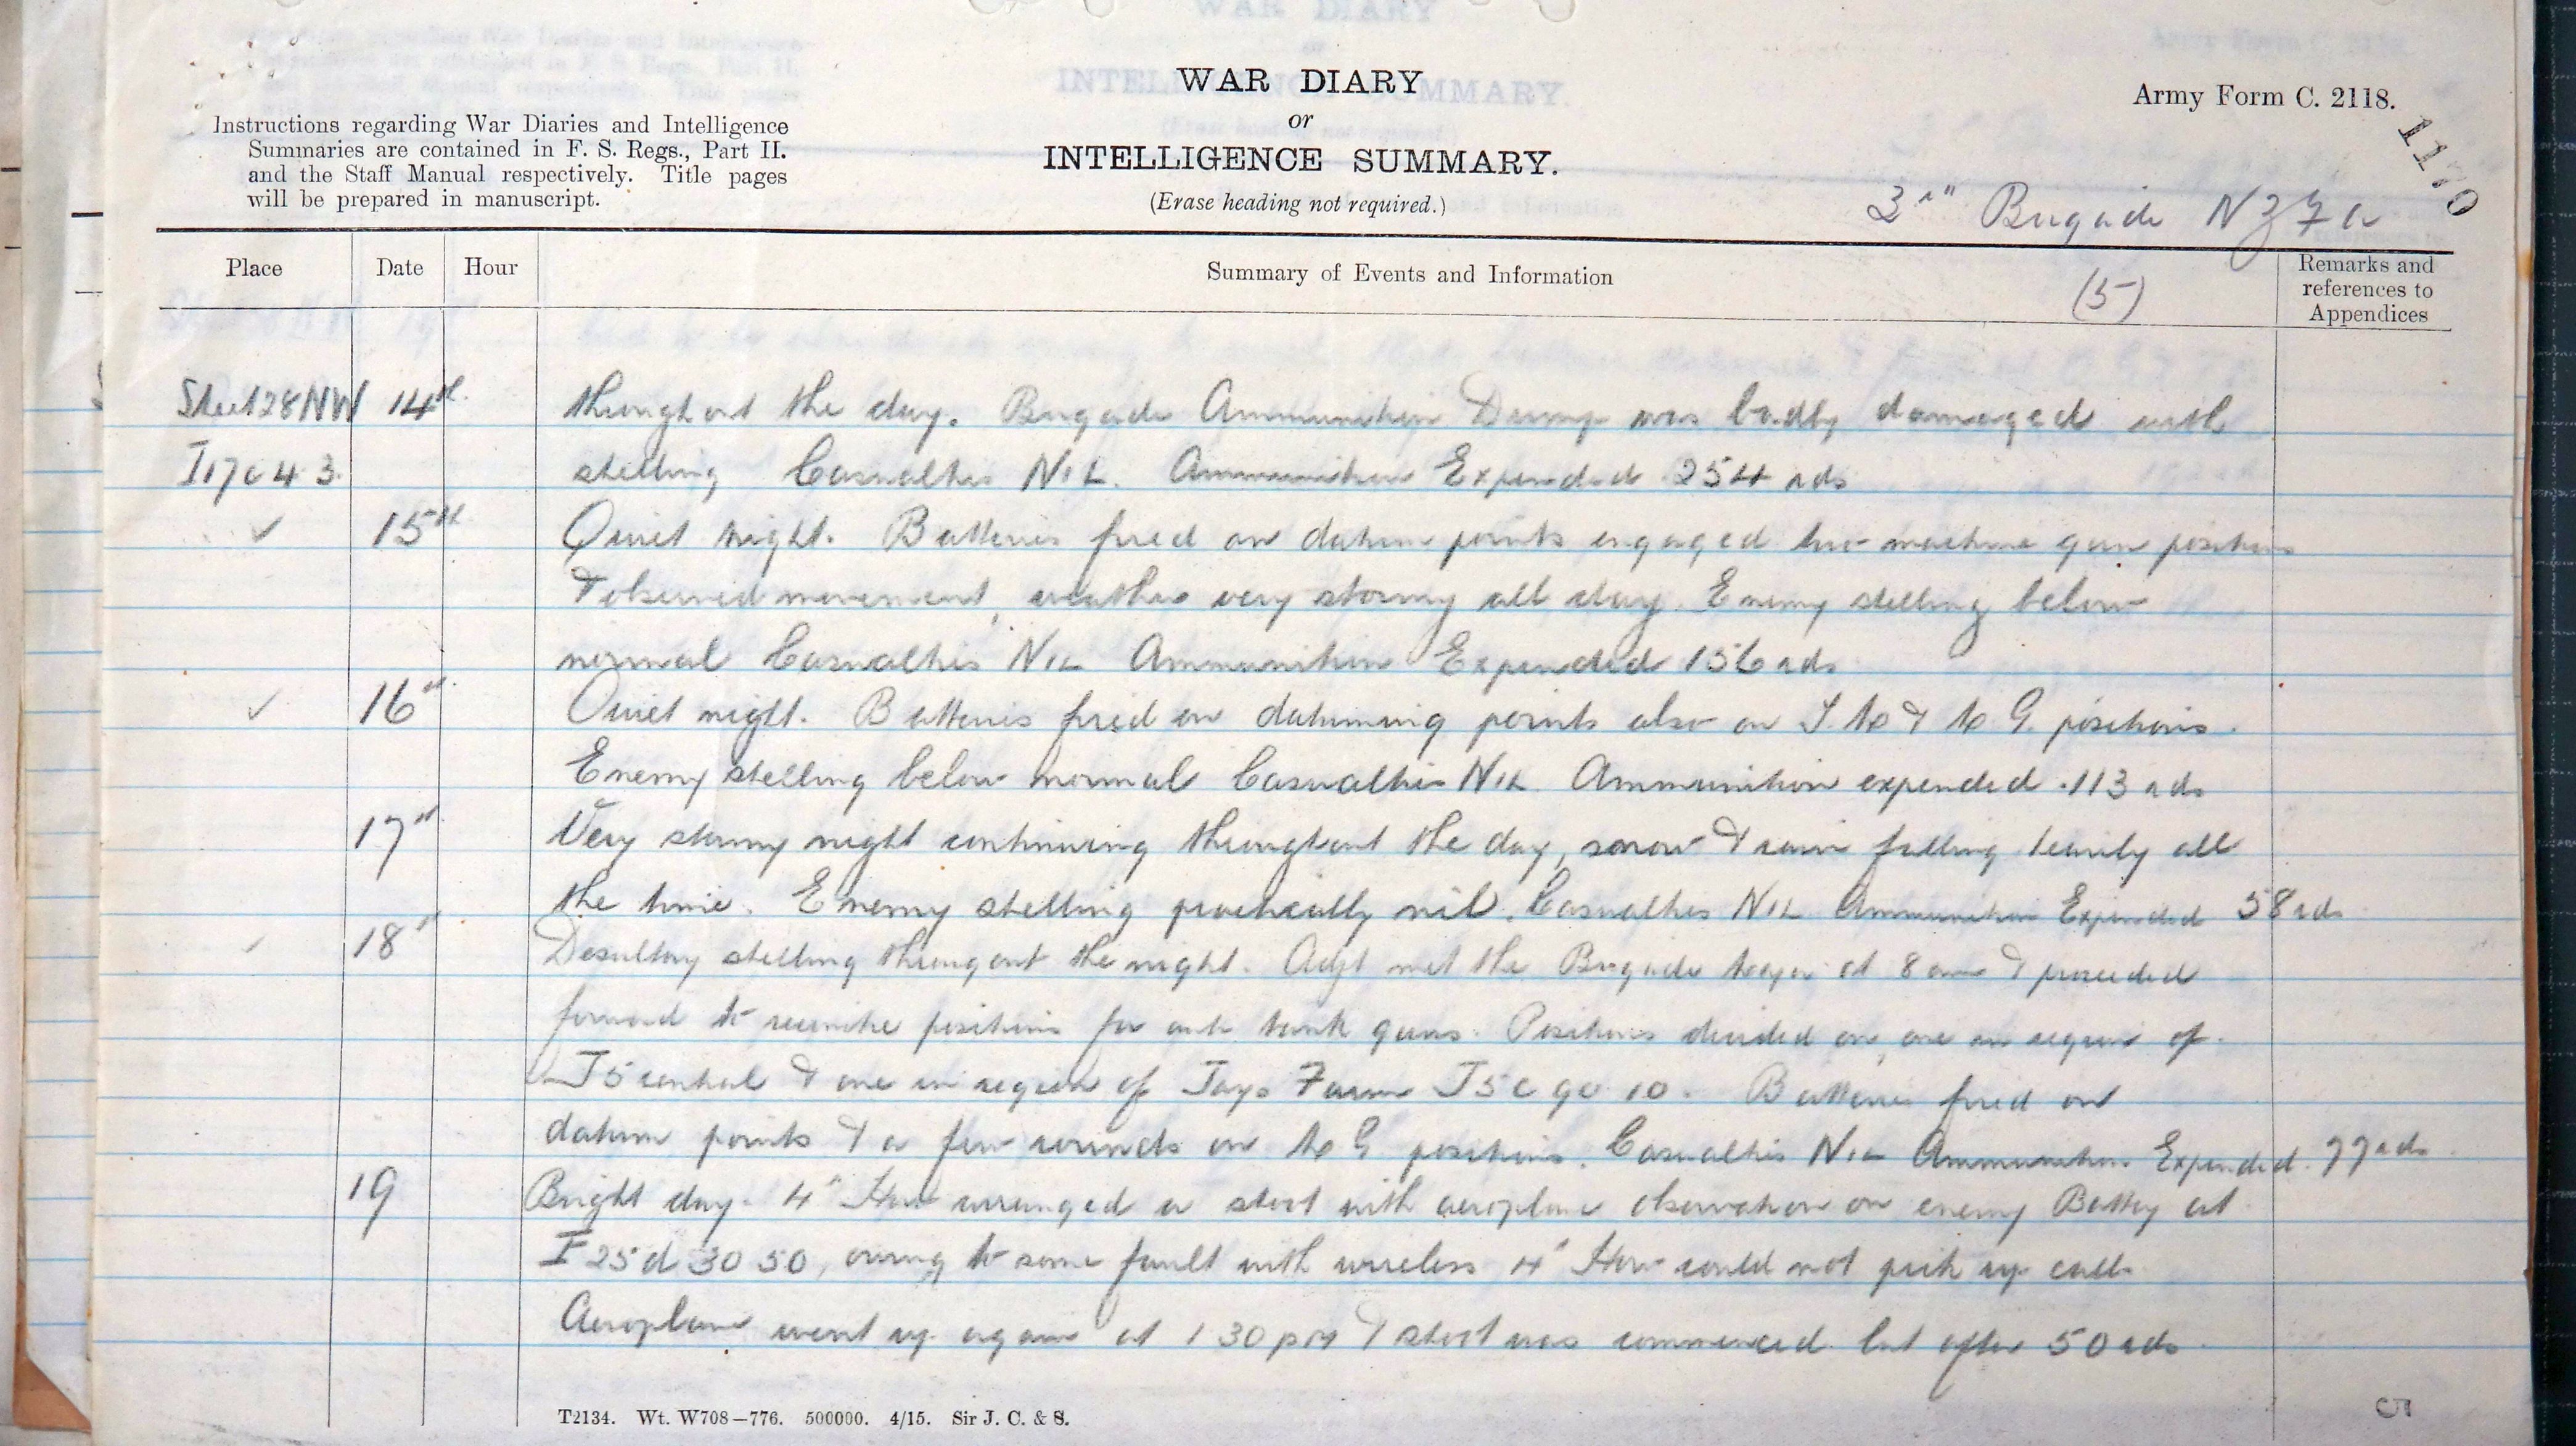 WAR DIARY
or
INTELLIGENCE SUMMARY.
(Erase heading not required.)
Army Form C. 2118.
Instructions regarding War Diaries and Intelligence
Summaries are contained in F. S. Regs., Part II.
and the Staff Manual respectively. Title pages
will be prepared in manuscript.
3rd Brigade NZFA
Place Date Hour Summary of Events and Information (5) Remarks and
references to
Appendices
Sheet 28NW 14th throughout the day. Brigade Ammunition Dump was badly damaged with
I17c43. shelling Casualties NIL. Ammunition Expended 254 rds
✓ 15th Quiet night. Batteries fired on datum points engaged two machine gun positions
& observed movement, weather very stormy all day. Enemy shelling below
normal Casualties NIL Ammunition Expended 156 rds
✓ 16th Quiet night. Batteries fired on datuming points also on T.M & M.G. positions.
Enemy shelling below normal Casualties NIL. Ammunition expended 113 rds
17th Very stormy night continuing throughout the day, snow & rain falling heavily all
the time. Enemy shelling practically nil. Casualties NIL Ammunition Expended 58 rds
✓ 18th Desultory shelling througout the night. Adjt met the Brigade Major at 8 am & proceeded
forward to reconitre positions for anti tank guns. Positions decided on, one in region of
J5 central & one in region of Jays Farm J5c 90 10. Batteries fired on
datum points & a few rounds on M G positions. Casualties NIL Ammunition Expended. 77 rds
19 Bright day. 4" How arranged a shoot with aeroplane observation on enemy Battery at
25d 30 50, owing to some fault with wireless 4" How could not pick up calls
Aeroplane went up again at 1 30 pm & shoot was commenced but after 50 rds
T2134. Wt. W708—776. 500000. 4/15. Sir J. C. & S.
5